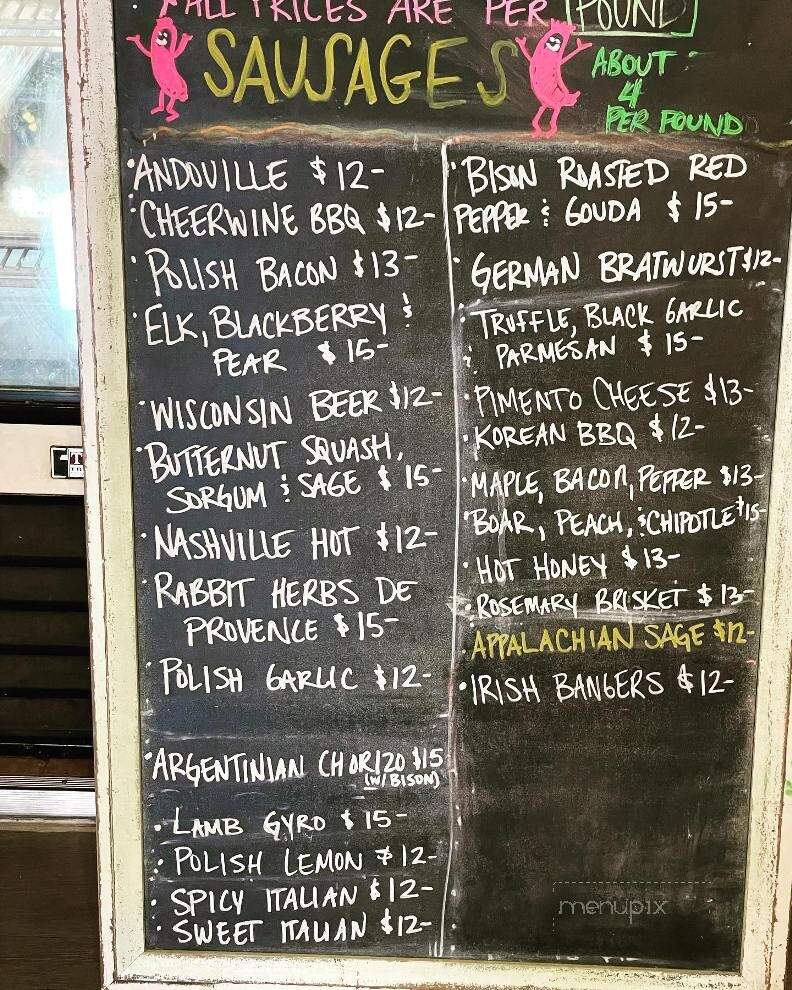 ALL PRICES ARE PER POUND
SAUSAGES
ABOUT
4
PER POUND
• ANDOUILLE $12-
• CHEERWINE BBQ $12-
• POLISH BACON $13-
• ELK, BLACKBERRY &
PEAR $15-
• WISCONSIN BEER $12-
• BUTTERNUT SQUASH,
SORGUM & SAGE $15-
• NASHVILLE HOT $12-
• RABBIT HERBS DE
PROVENCE $15-
• POLISH GARLIC $12-
• ARGENTINIAN CHORIZO $15
(W/BISON)
• LAMB GYRO $15-
• POLISH LEMON $12-
• SPICY ITALIAN $12-
• SWEET ITALIAN $12-
• BISON ROASTED RED
PEPPER & GOUDA $15-
• GERMAN BRATWURST $12-
• TRUFFLE, BLACK GARLIC
& PARMESAN $15-
• PIMENTO CHEESE $13-
• KOREAN BBQ $12-
• MAPLE, BACON, PEPPER $13-
• BOAR, PEACH, & CHIPOTLE $15-
• HOT HONEY $13-
• ROSEMARY BRISKET $13-
• APPALACHIAN SAGE $12-
• IRISH BANGERS $12-
menupix